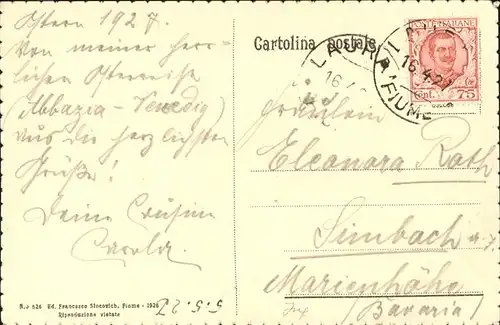 Ostern 1927.
Von meiner herr-
lichen Osterreise
(Abbazia - Venedig)
aus die herzlichsten
Grüße!
Deine Cousine
Carola.
Cartolina postale
LAURANA
FIUME
16.4.27
POSTE ITALIANE
Cent. 75
Fräulein
Eleonora Rath
Simbach a. J.
Marienhöhe
(Bavaria)
5.5.27
R.o 626 Ed. Francesco Slocovich, Fiume - 1926
Riproduzione vietata